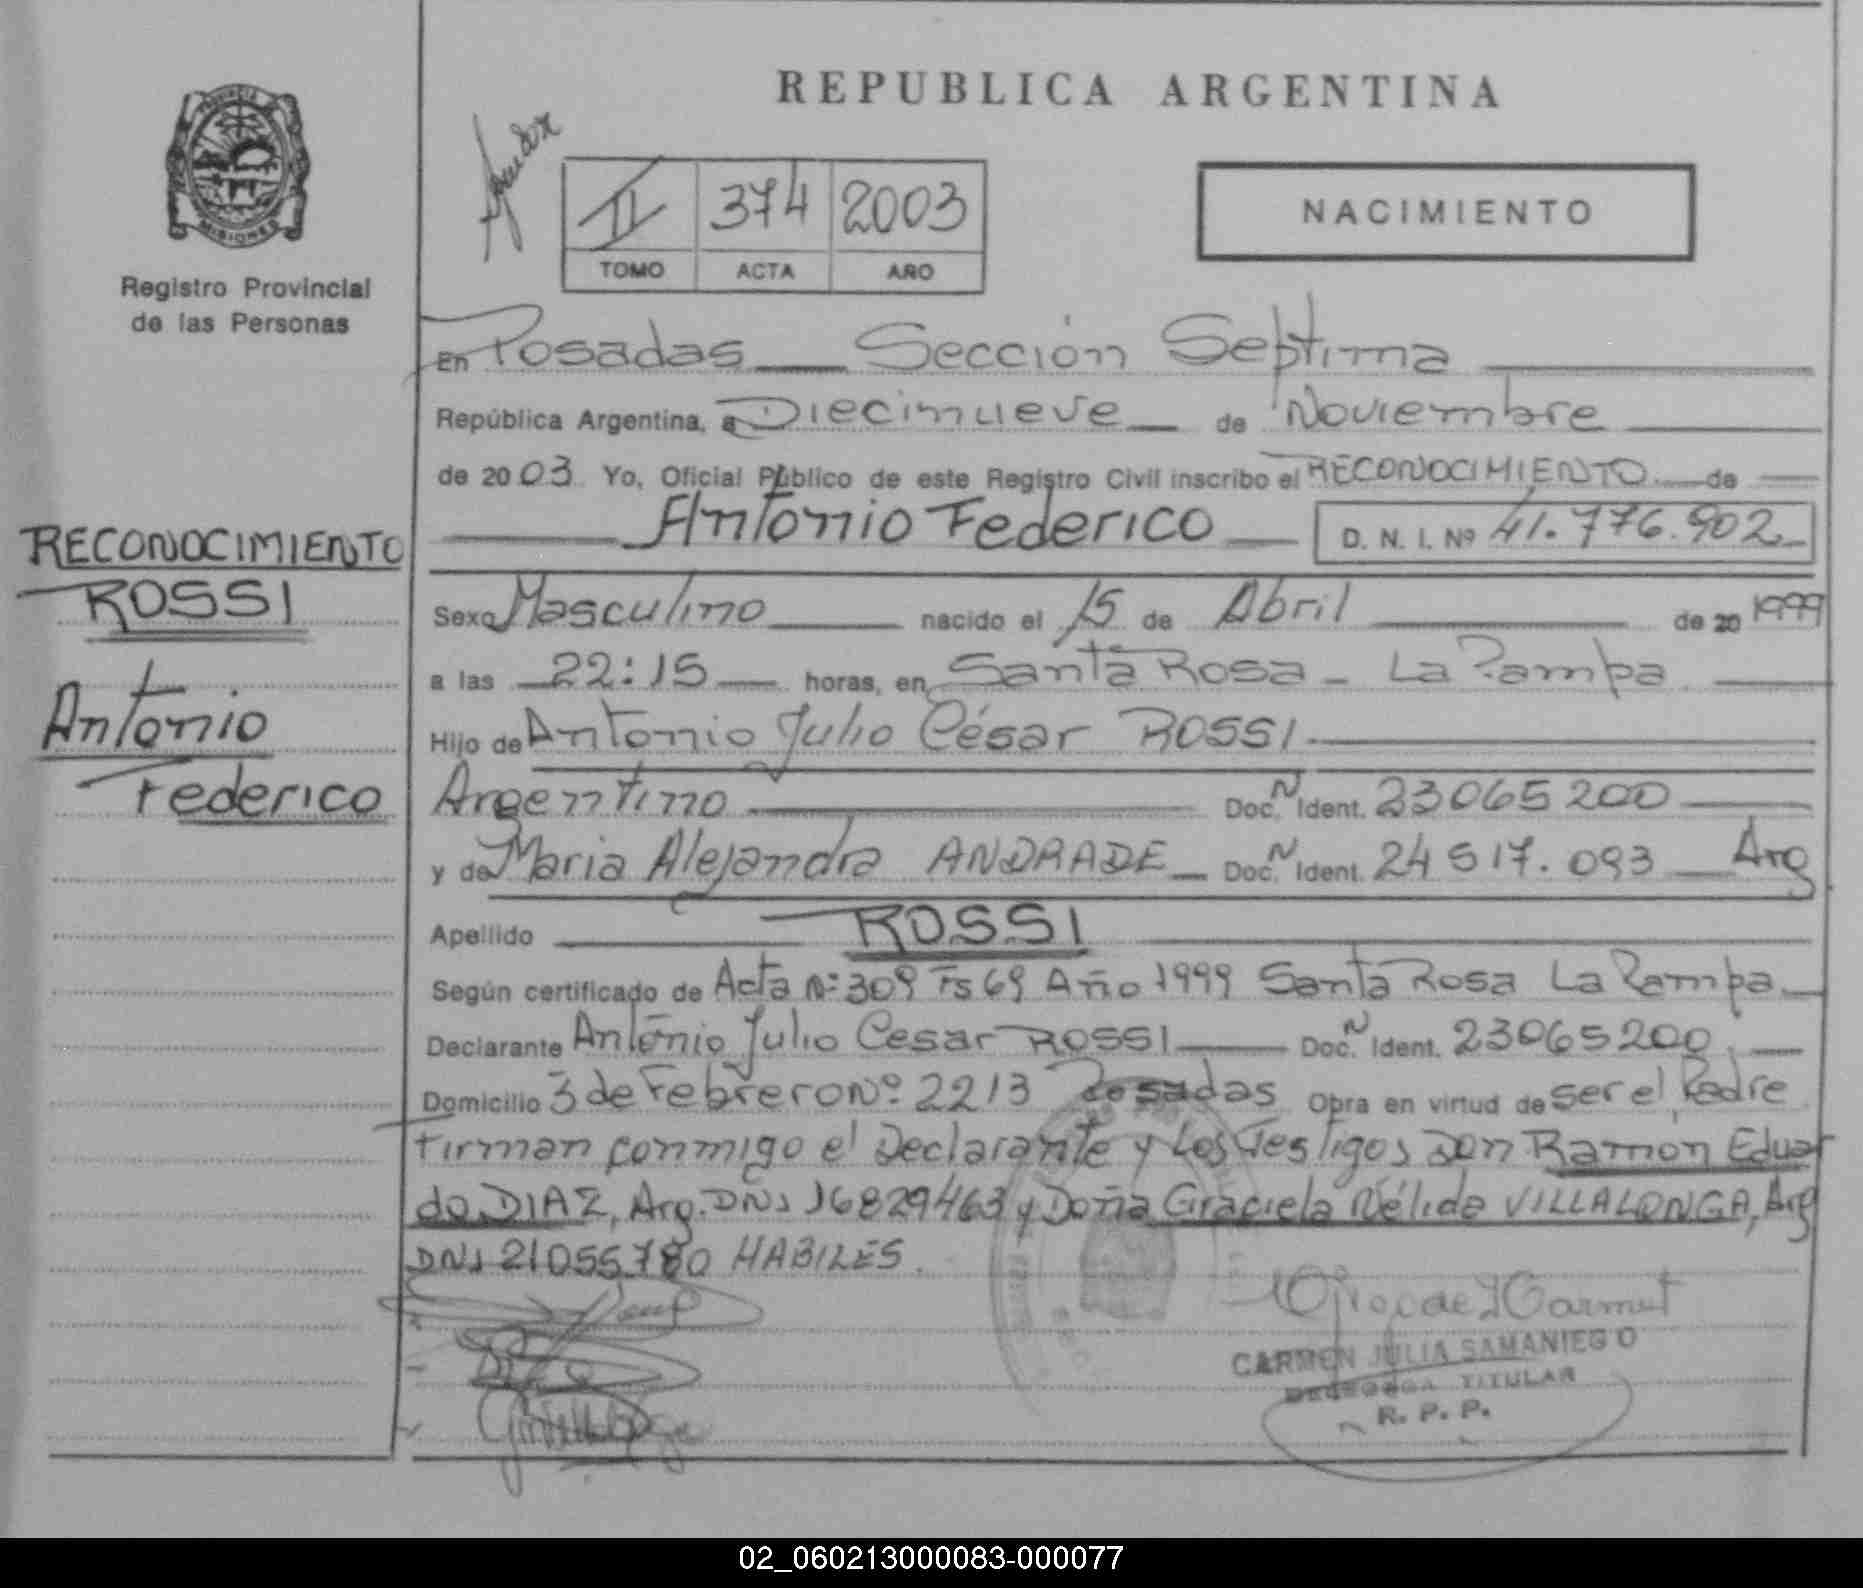 REPUBLICA ARGENTINA
PROVINCIA DE MISIONES
Registro Provincial
de las Personas
II 374 2003
TOMO ACTA AÑO
NACIMIENTO
En Posadas Sección Septima
República Argentina, a Diecinueve de Noviembre
de 2003 Yo, Oficial Público de este Registro Civil inscribo el RECONOCIMIENTO de
Antonio Federico D. N. I. Nº 41.776.902
RECONOCIMIENTO
ROSSI
Antonio
Federico
Sexo Masculino nacido el 15 de Abril de 20 1999
a las 22:15 horas, en Santa Rosa - La Pampa
Hijo de Antonio Julio César ROSSI
Argentino Doc. N Ident. 23065200
y de Maria Alejandra ANDRADE Doc. N Ident. 24517.093 Arg
Apellido ROSSI
Según certificado de Acta Nº 309 Fs 69 Año 1999 Santa Rosa La Pampa
Declarante Antonio Julio Cesar ROSSI Doc. N Ident. 23065200
Domicilio 3 de Febrero Nº 2213 Posadas Obra en virtud de ser el Padre
Firman conmigo el Declarante y Los Testigos Don Ramon Eduar
do DIAZ, Arg. DNI 16829463 y Doña Graciela Nélida VILLALONGA, Arg
DNI 21055780 HABILES.
CARMEN JULIA SAMANIEGO
TITULAR
R. P. P.
02_060213000083-000077